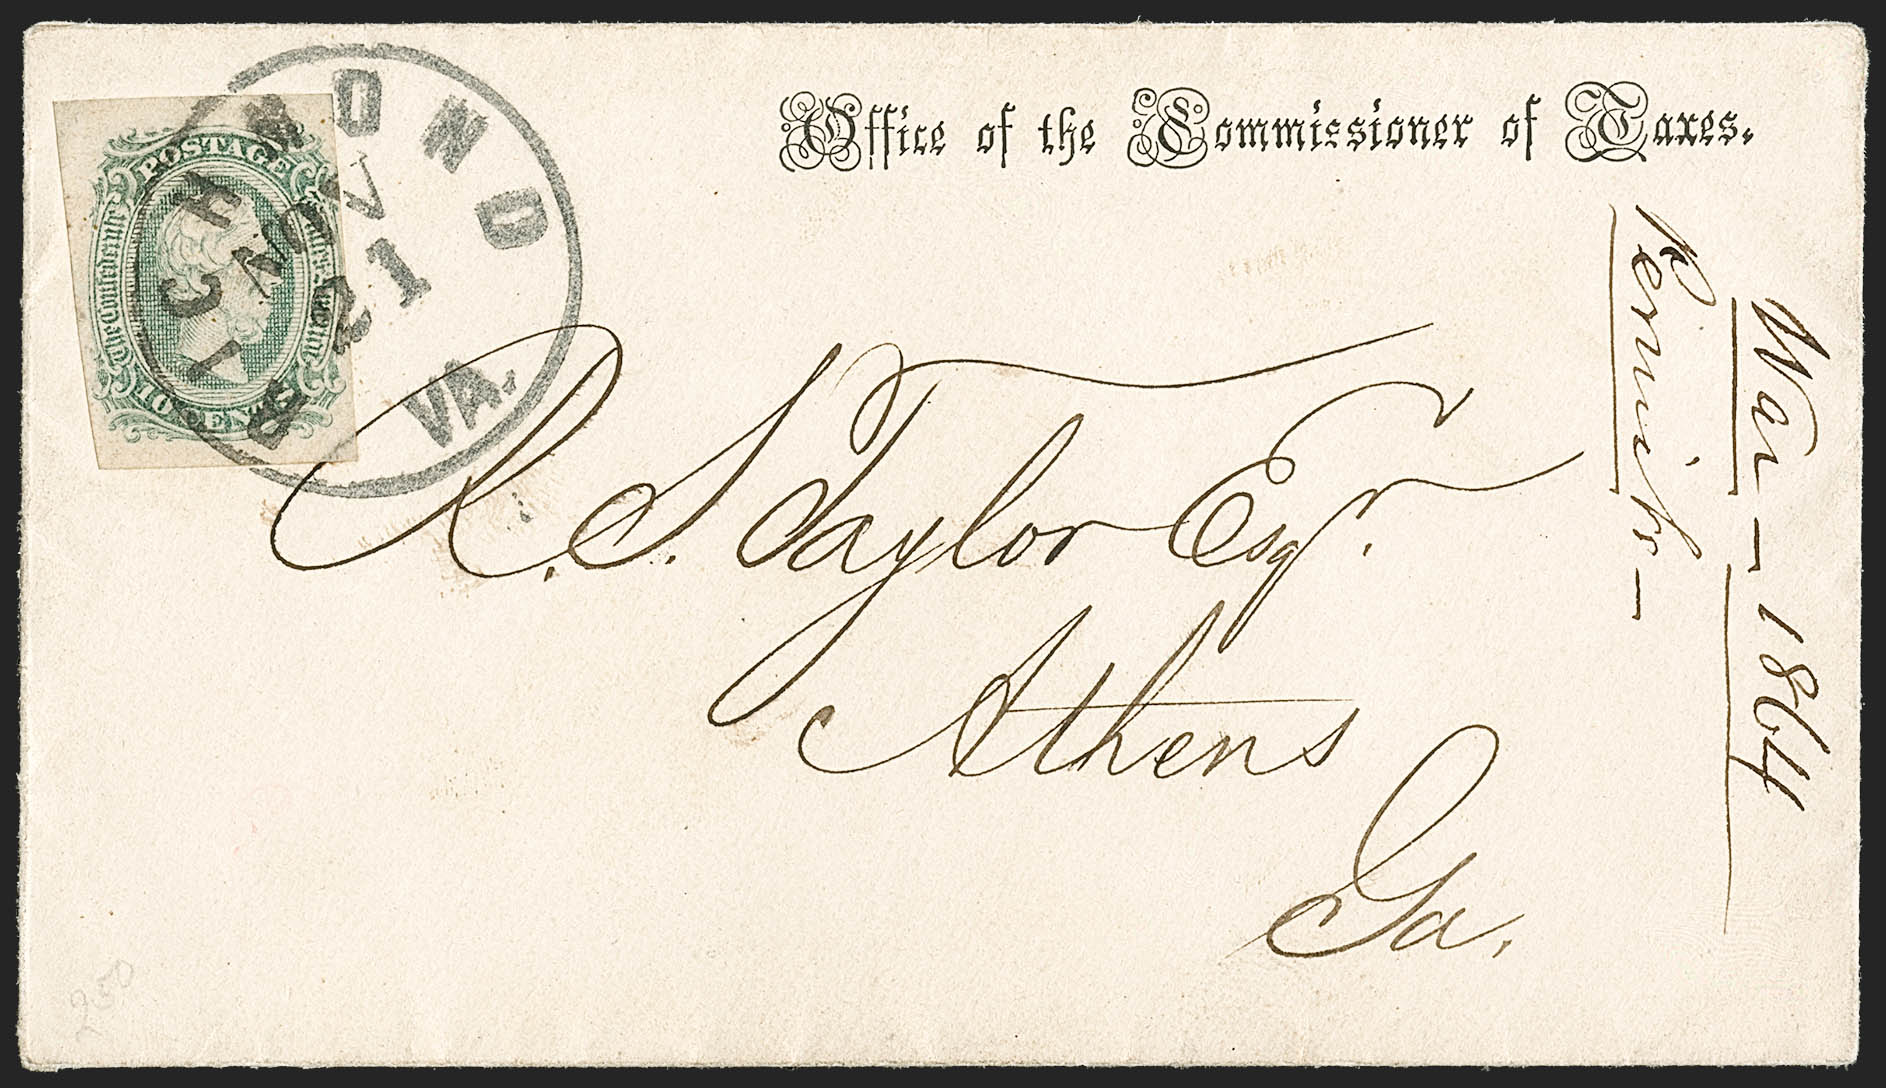 Office of the Commissioner of Taxes.
POSTAGE
The Confederate States of America
10 CENTS
RICHMOND
NOV
21
VA.
R. S. Taylor Esqr.
Athens
Ga.
War - 1864
Permits -
250